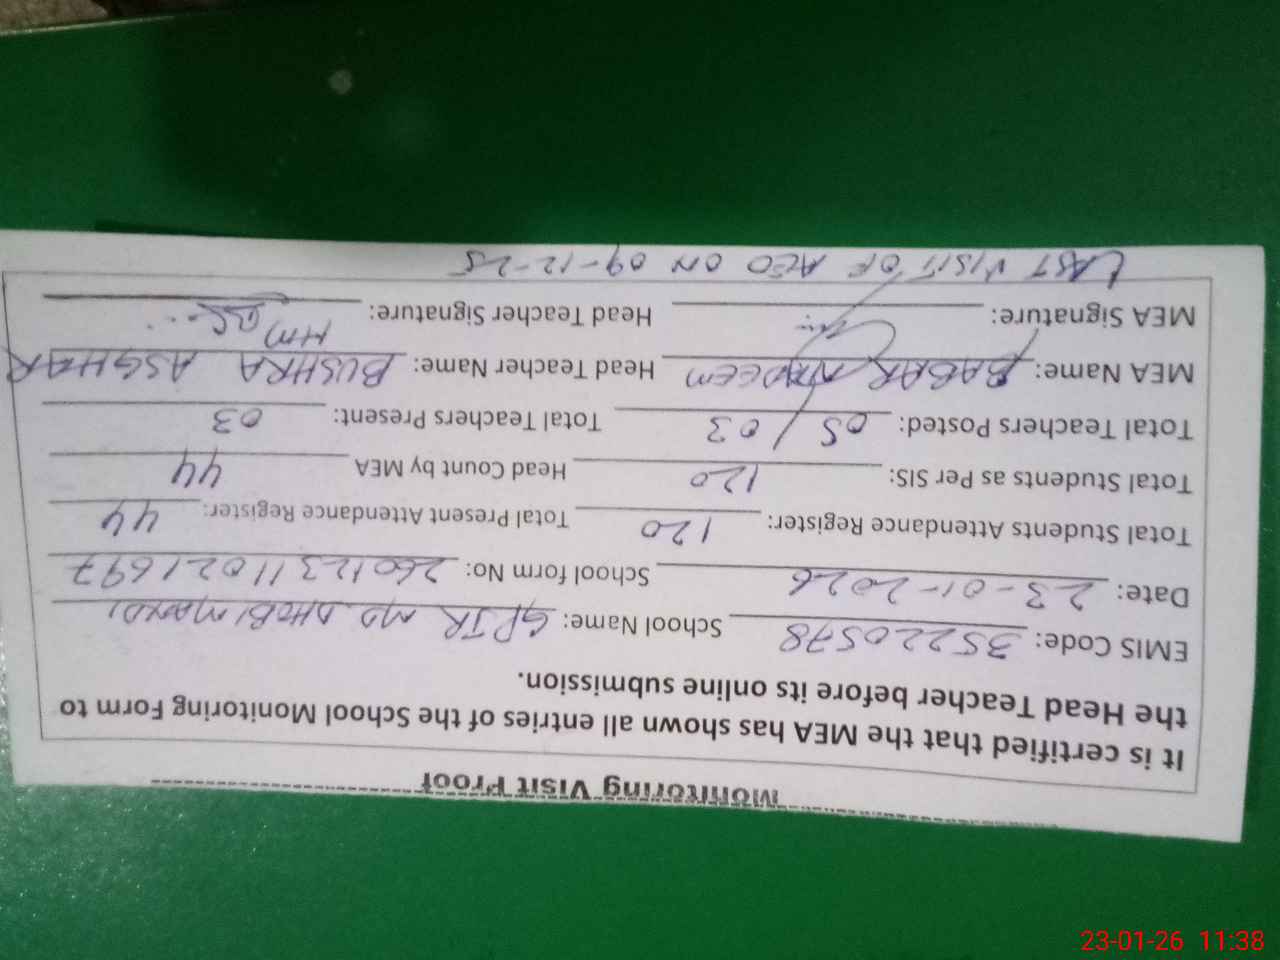 Monitoring Visit Proof
It is certified that the MEA has shown all entries of the School Monitoring Form to
the Head Teacher before its online submission.
EMIS Code: 35220578 School Name: GPJR MO DHOBI MANDI
Date: 23-01-2026 School form No: 26012311021697
Total Students Attendance Register: 120 Total Present Attendance Register: 44
Total Students as Per SIS: 120 Head Count by MEA 44
Total Teachers Posted: 05/03 Total Teachers Present: 03
MEA Name: BABAR NADEEM Head Teacher Name: BUSHRA ASGHAR
MEA Signature: Head Teacher Signature: HM
LAST VISIT OF AEO ON 09-12-25
23-01-26 11:38